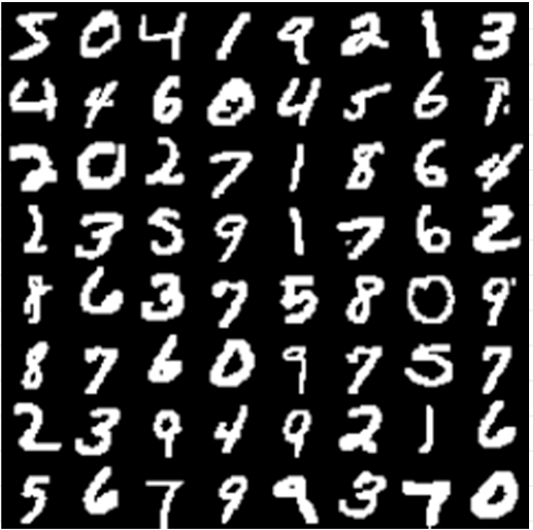 5 0 4 1 9 2 1 3
4 4 6 0 4 5 6 1
2 0 2 7 1 8 6 4
2 3 5 9 1 7 6 2
8 6 3 7 5 8 0 9
8 7 6 0 9 7 5 7
2 3 9 4 9 2 1 6
5 6 7 9 9 3 7 0